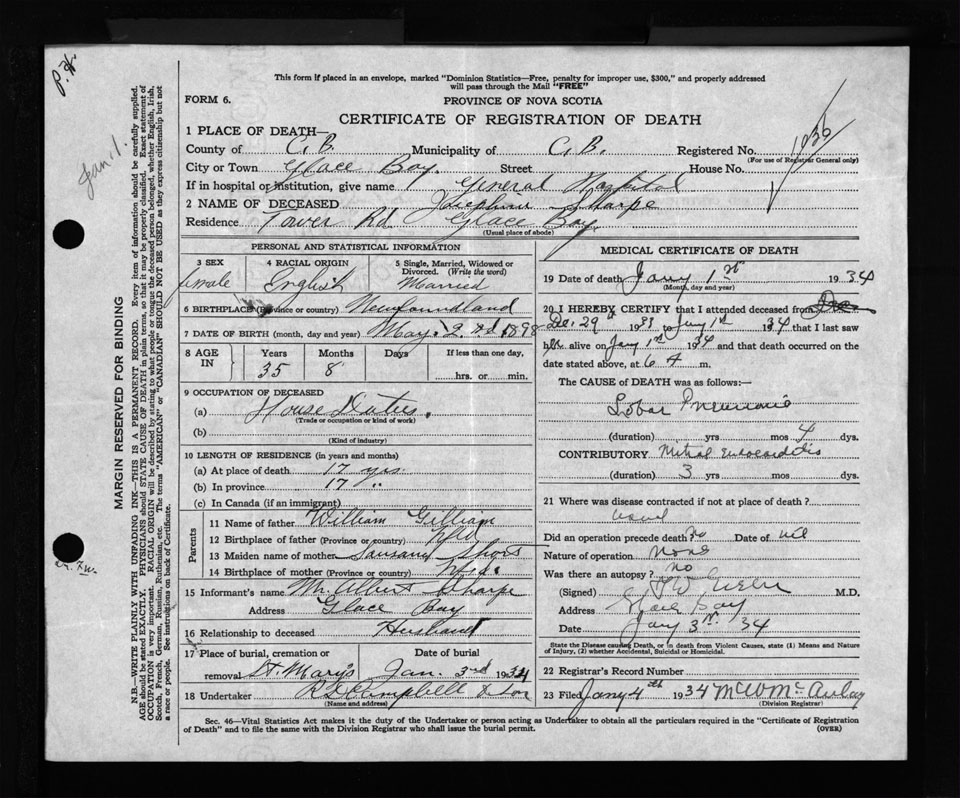 This form if placed in an envelope, marked "Dominion Statistics—Free, penalty for improper use, $300," and properly addressed
will pass through the Mail "FREE"
FORM 6.
PROVINCE OF NOVA SCOTIA
CERTIFICATE OF REGISTRATION OF DEATH
1 PLACE OF DEATH—
County of C.B. Municipality of C.B. Registered No.
(For use of Registrar General only)
City or Town Glace Bay. Street House No.
If in hospital or institution, give name General Hospital
2 NAME OF DECEASED Josephine Sharpe
Residence Tower Rd Glace Bay
(Usual place of abode)
PERSONAL AND STATISTICAL INFORMATION
3 SEX female
4 RACIAL ORIGIN English
5 Single, Married, Widowed or Divorced. (Write the word) Married
6 BIRTHPLACE (Province or country) Newfoundland
7 DATE OF BIRTH (month, day and year) May. 2nd 1898
8 AGE IN Years 35 Months 8 Days If less than one day, hrs. or min.
9 OCCUPATION OF DECEASED
(a) House Duties.
(Trade or occupation or kind of work)
(b)
(Kind of industry)
10 LENGTH OF RESIDENCE (in years and months)
(a) At place of death 17 yrs
(b) In province 17 "
(c) In Canada (if an immigrant)
Parents
11 Name of father William Gilliam
12 Birthplace of father (Province or country) Nfld
13 Maiden name of mother Short
14 Birthplace of mother (Province or country) Nfld.
15 Informant's name Mr Albert Sharpe
Address Glace Bay
16 Relationship to deceased Husband
17 Place of burial, cremation or removal St. Mary's Date of burial Jan. 3rd 1934
18 Undertaker Campbell & Son
(Name and address)
MEDICAL CERTIFICATE OF DEATH
19 Date of death Jany 1st 1934
(Month, day and year)
20 I HEREBY CERTIFY that I attended deceased from
Dec. 29th 1933 to Jany 1st 1934 that I last saw
her alive on Jany 1st 1934 and that death occurred on the
date stated above, at 6 m.
The CAUSE of DEATH was as follows:—
Lobar Pneumonia
(duration) yrs mos 4 dys.
CONTRIBUTORY Mitral Endocarditis
(duration) 3 yrs mos dys.
21 Where was disease contracted if not at place of death?
Did an operation precede death? no Date of nil
Nature of operation None
Was there an autopsy? no
(Signed) M.D.
Address Glace Bay
Date Jany 3rd 34
State the Disease causing Death, or in death from Violent Causes, state (1) Means and Nature of Injury, (2) whether Accidental, Suicidal or Homicidal.
22 Registrar's Record Number
23 Filed Jany 4th 1934
(Division Registrar)
Sec. 46—Vital Statistics Act makes it the duty of the Undertaker or person acting as Undertaker to obtain all the particulars required in the "Certificate of Registration
of Death" and to file the same with the Division Registrar who shall issue the burial permit.
(OVER)
MARGIN RESERVED FOR BINDING
N.B.—WRITE PLAINLY WITH UNFADING INK—THIS IS A PERMANENT RECORD. Every item of information should be carefully supplied.
AGE should be stated EXACTLY. PHYSICIANS should STATE CAUSE OF DEATH in plain terms, so that it may be properly classified. Exact statement of
OCCUPATION is very important. RACIAL ORIGIN will be described by stating to what people or tongue the deceased person belonged, whether English, Irish,
Scotch, French, German, Russian, Ruthenian, etc. The terms "AMERICAN" or "CANADIAN" SHOULD NOT BE USED as they express citizenship but not
a race or people. See instructions on back of Certificate.
Jan 1.